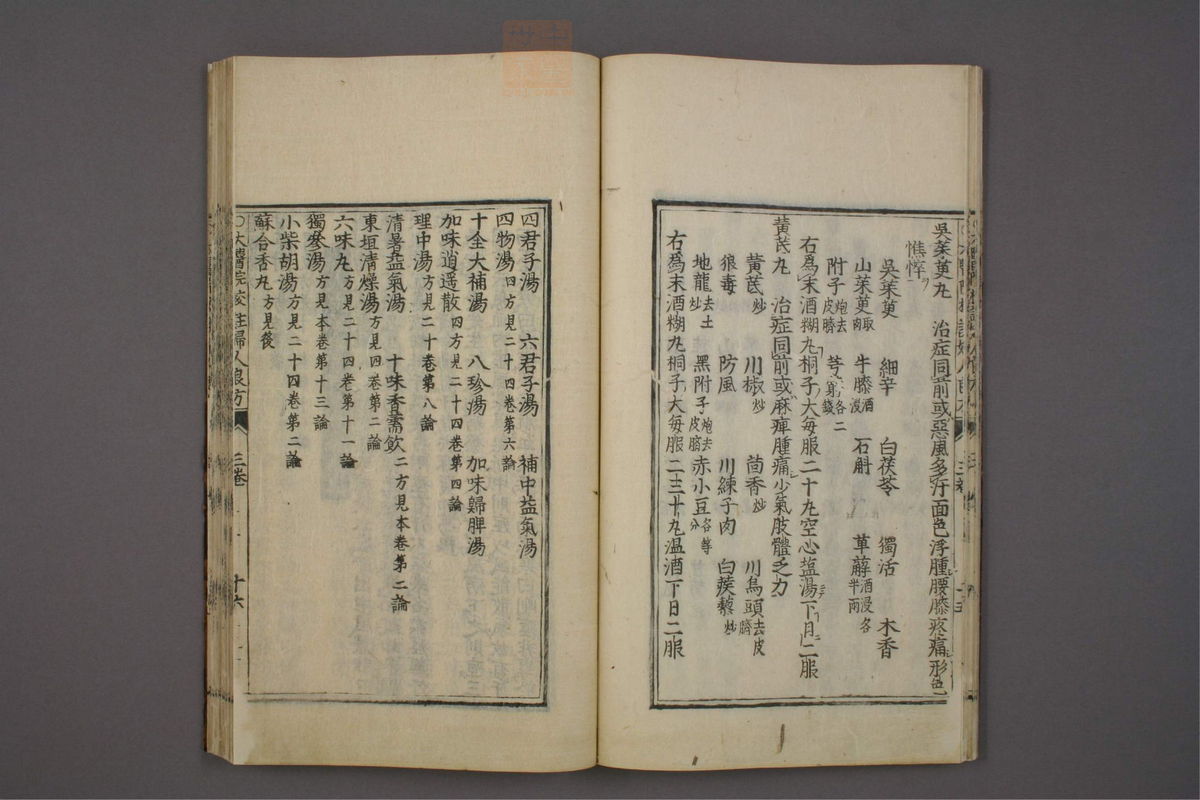 吳茱萸丸　治症同前或惡風多汗面色浮腫腰膝疼痛形色
憔悴
吳茱萸　細辛　白茯苓　獨活　木香
山茱萸　牛膝酒浸　石斛　萆薢酒浸各半兩
附子炮去皮臍
右爲末酒糊丸桐子大每服二十丸空心塩湯下日二服
黃芪丸　治症同前或麻痺腫痛少氣肢體乏力
黃芪炒　川椒炒　茴香炒　川烏頭去皮臍
狼毒　防風　川練子肉　白蒺藜炒
地龍去土炒　黑附子炮去皮臍　赤小豆各等分
右爲末酒糊丸桐子大每服二三十丸温酒下日二服
四君子湯　六君子湯　補中益氣湯
四物湯四方見二十四卷第六論
十全大補湯　八珍湯　加味歸脾湯
加味逍遥散四方見二十四卷第四論
理中湯方見二十卷第八論
清暑益氣湯　十味香薷飲二方見本卷第二論
東垣清燥湯方見四卷第二論
六味丸方見二十四卷第十一論
獨參湯方見本卷第十三論
小柴胡湯方見二十四卷第二論
蘇合香丸方見後
○太醫院校註婦人良方　三卷　十六